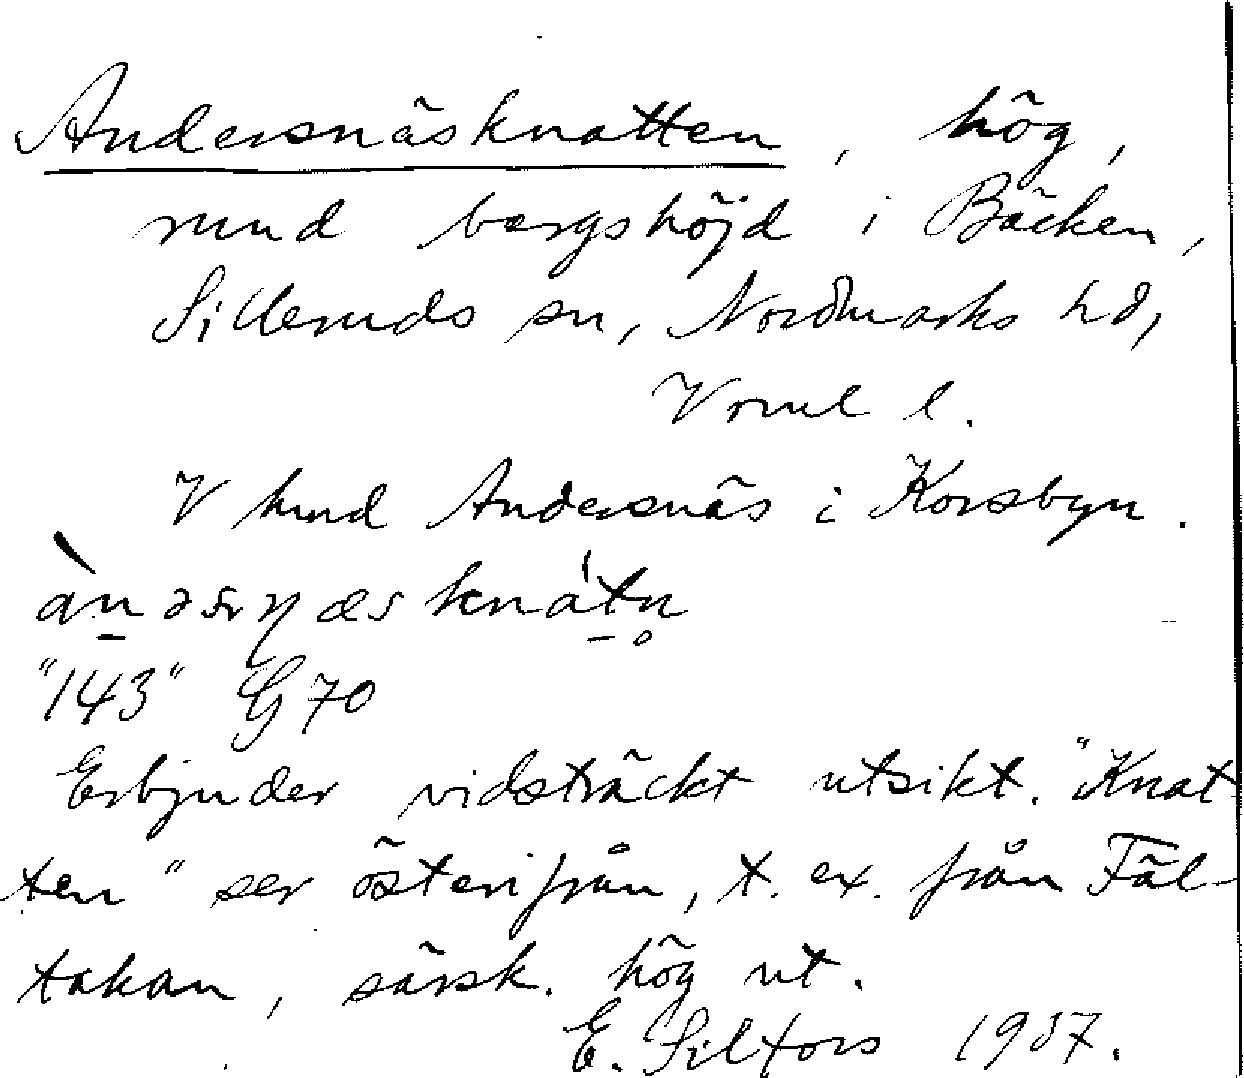 Andersnäsknatten, hög,
rund bergshöjd i Bäcken,
Silleruds sn, Nordmarks hd,
Verml l.
V hund Andersnäs i Korsbyn.
"143" G 70
Erbjuder vidsträckt utsikt. "Knat
ten" ser österifrån, t. ex. från Fäl-
takan, särsk. hög ut.
E. Silfors 1937.